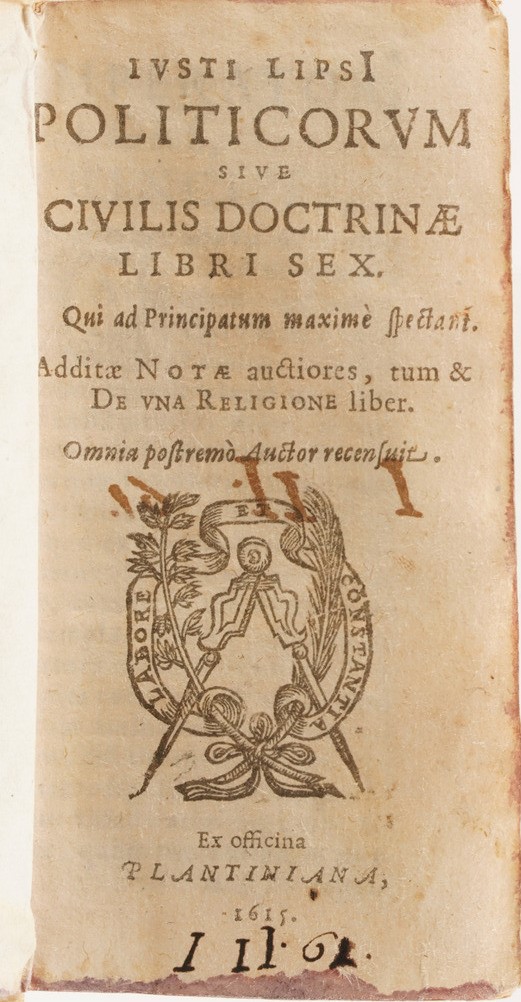 IVSTI LIPSI
POLITICORVM
SIVE
CIVILIS DOCTRINÆ
LIBRI SEX.
Qui ad Principatum maximè spectant.
Additæ NOTÆ auctiores, tum &
DE VNA RELIGIONE liber.
Omnia postremò Auctor recensuit.
LABORE
ET
CONSTANTIA
Ex officina
PLANTINIANA,
1615.
I II. 61.